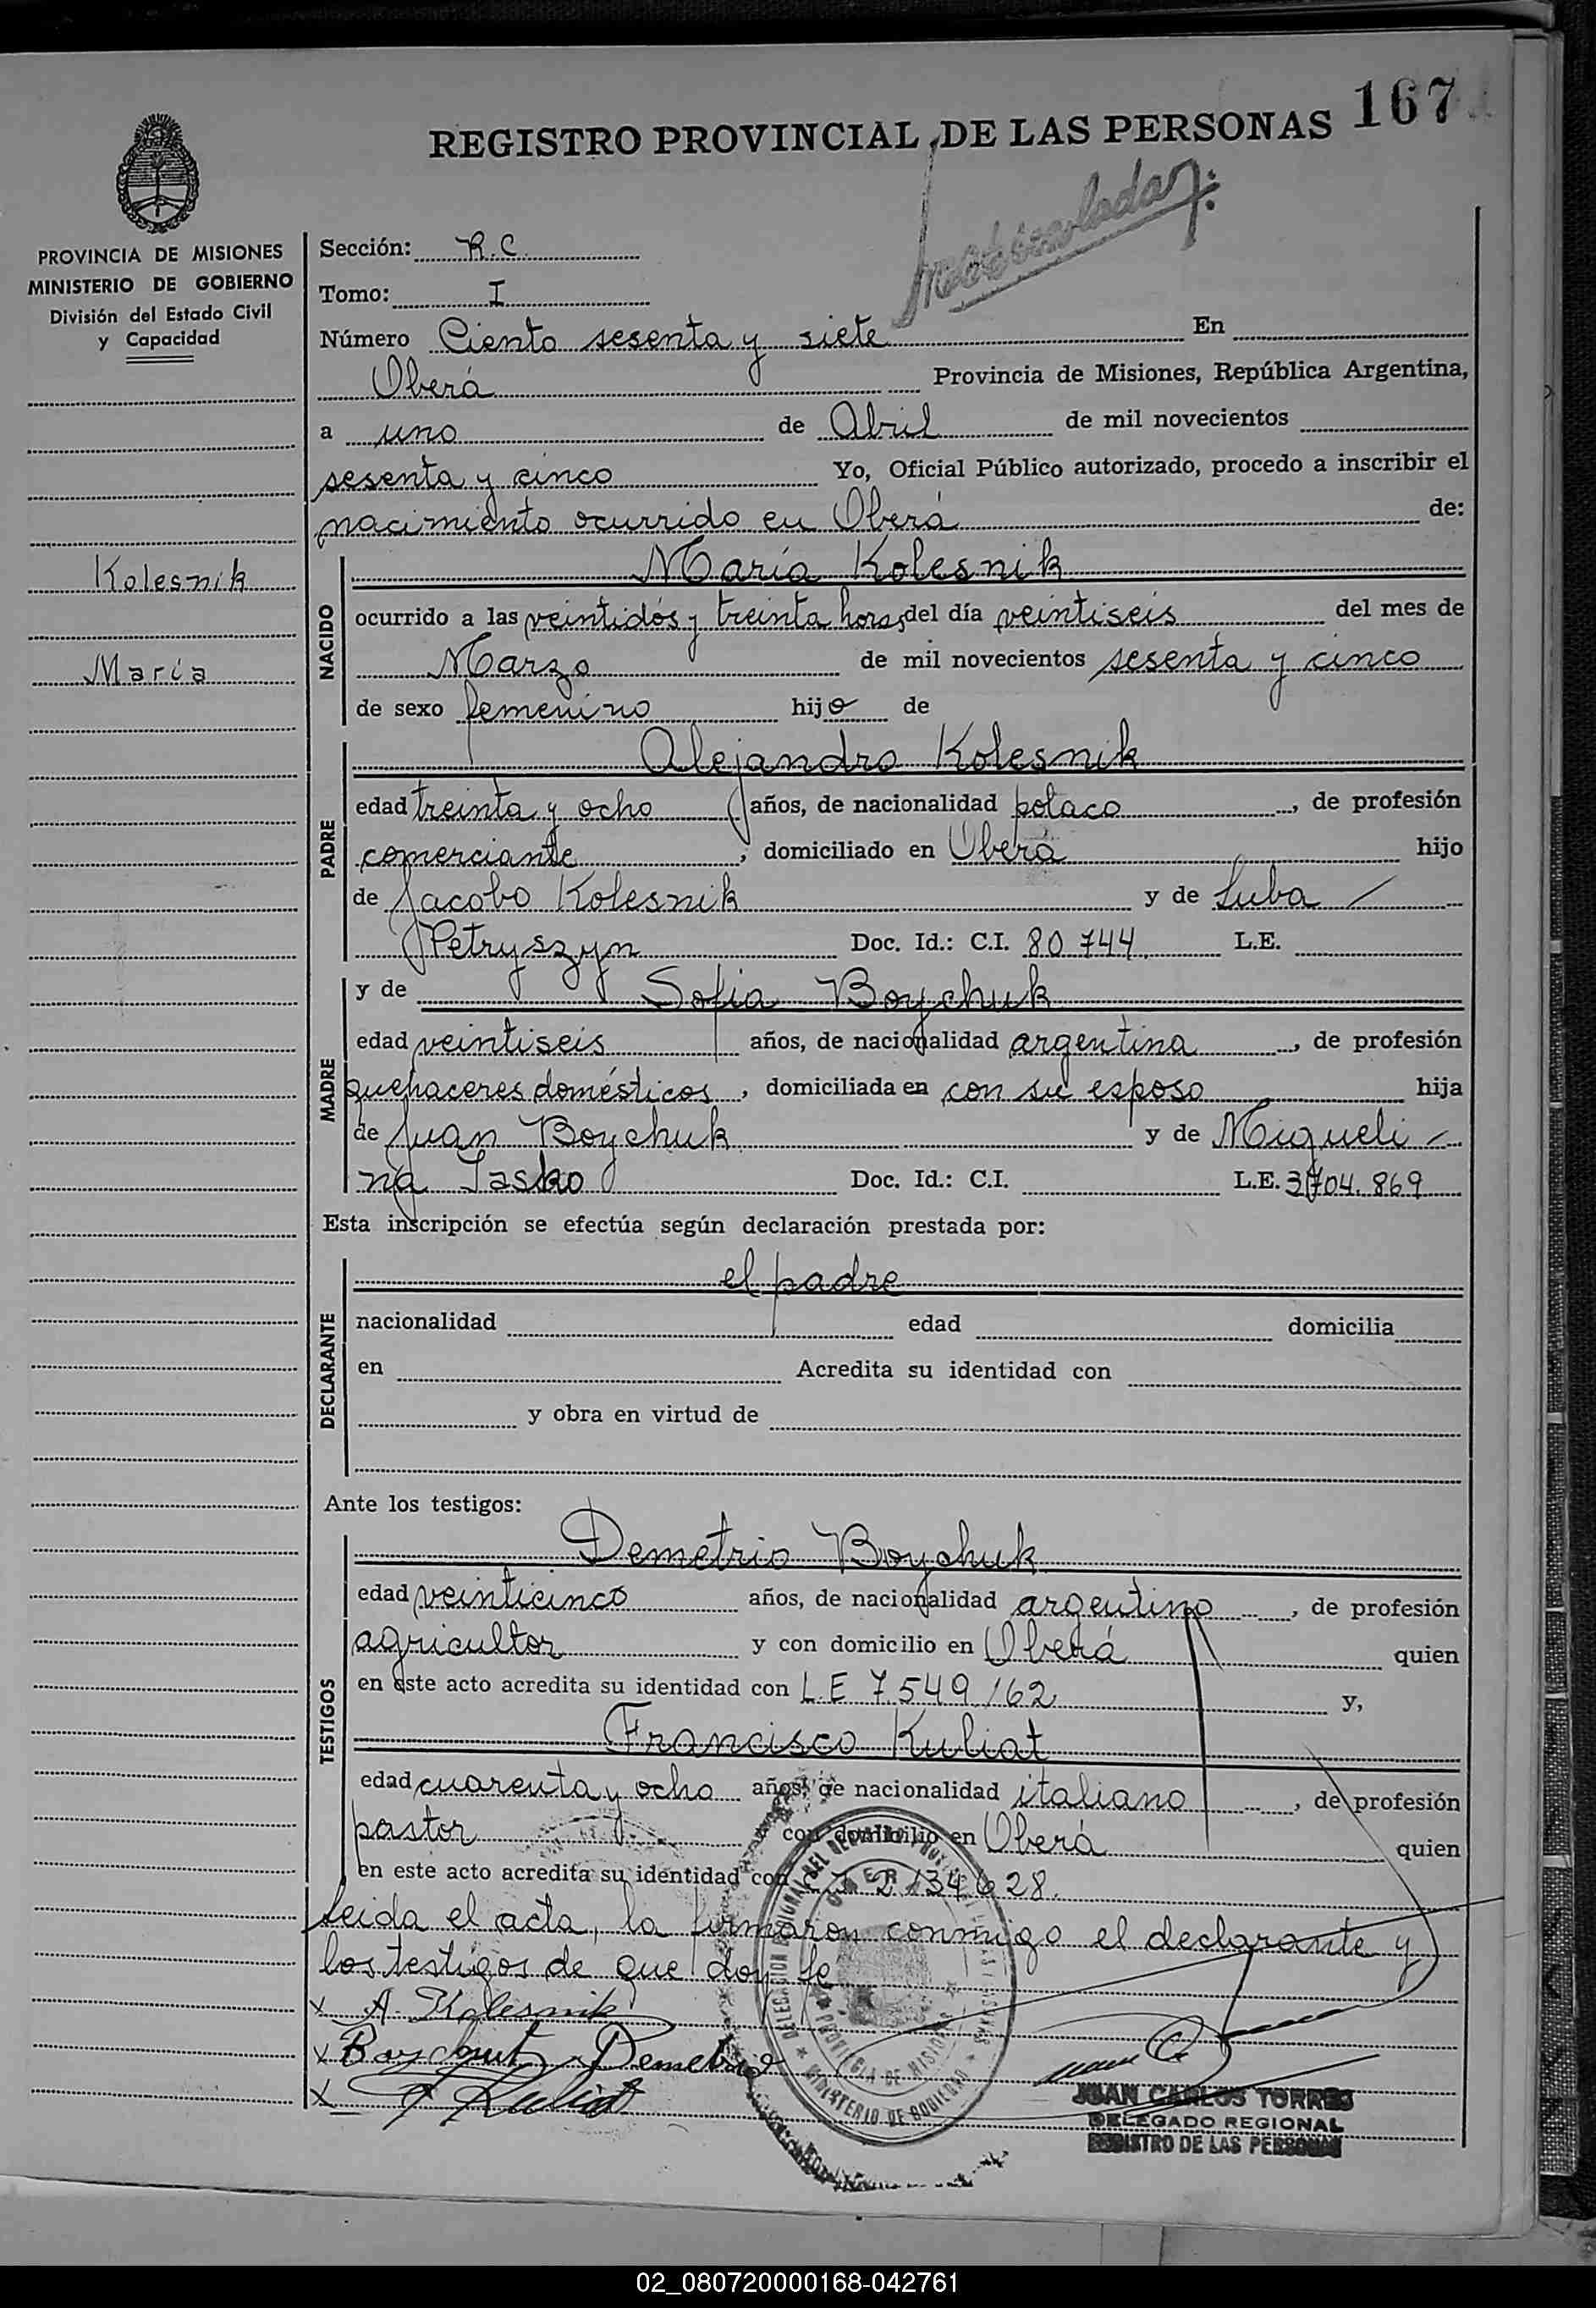 167
REGISTRO PROVINCIAL DE LAS PERSONAS
Matriculada
PROVINCIA DE MISIONES
MINISTERIO DE GOBIERNO
División del Estado Civil
y Capacidad
Kolesnik
María
Sección: R.C.
Tomo: I
Número Ciento sesenta y siete En
Oberá Provincia de Misiones, República Argentina,
a uno de Abril de mil novecientos
sesenta y cinco Yo, Oficial Público autorizado, procedo a inscribir el
nacimiento ocurrido en Oberá de:
NACIDO
María Kolesnik
ocurrido a las veintidós y treinta horas, del día veintiseis del mes de
Marzo de mil novecientos sesenta y cinco
de sexo femenino hijo de
PADRE
Alejandro Kolesnik
edad treinta y ocho años, de nacionalidad polaco, de profesión
comerciante, domiciliado en Oberá hijo
de Jacobo Kolesnik y de Luba
Petryszyn Doc. Id.: C.I. 80.744. L.E.
MADRE
y de Sofia Boychuk
edad veintiseis años, de nacionalidad argentina, de profesión
quehaceres domésticos, domiciliada en con su esposo hija
de Juan Boychuk y de Migueli
na Jasko Doc. Id.: C.I. L.E. 3704.869
Esta inscripción se efectúa según declaración prestada por:
DECLARANTE
el padre
nacionalidad edad domicilia
en Acredita su identidad con
y obra en virtud de
Ante los testigos:
TESTIGOS
Demetrio Boychuk
edad veinticinco años, de nacionalidad argentino, de profesión
agricultor y con domicilio en Oberá quien
en este acto acredita su identidad con L.E 7.549.162 y,
Francisco Kuliat
edad cuarenta y ocho años, de nacionalidad italiano, de profesión
pastor con domicilio en Oberá quien
en este acto acredita su identidad con 2134628.
Leida el acta, la firmaron conmigo el declarante y
los testigos de que doy fe
x A. Kolesnik
x Boychuk Demetrio
x F Kuliat
OBERA
PROVINCIA DE MISIONES
MINISTERIO DE GOBIERNO
JUAN CARLOS TORRES
DELEGADO REGIONAL
REGISTRO DE LAS PERSONAS
02_080720000168-042761